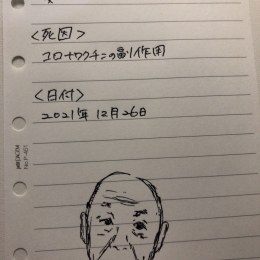 <死因>
コロナワクチンの副作用
<日付>
2021年 12月26日